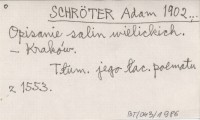 SCHRÖTER Adam 1902...
Opisanie salin wielickich.
– Kraków.
Tłum. jego łac. poematu
z 1553.
BT/043/1986